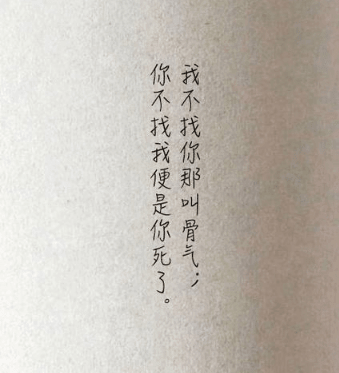 我不找你那叫骨气；
你不找我便是你死了。